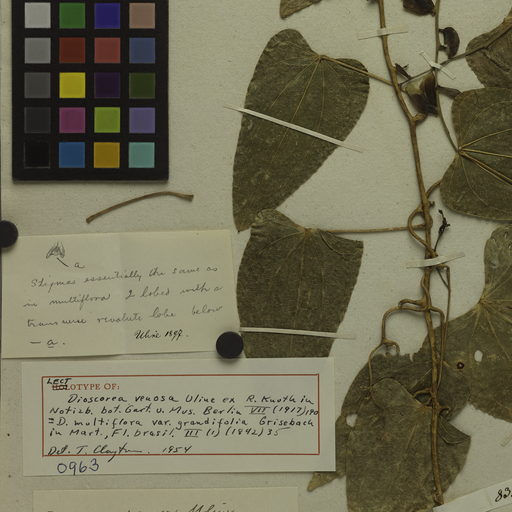 a
Stigmas essentially the same as
in multiflora 2 lobed with a
transverse revolute lobe below
— a. Uline 1897.
LECTOTYPE OF:
Dioscorea venosa Uline ex R. Knuth in
Notizb. bot. Gart. u. Mus. Berlin VII (1917) 190
= D. multiflora var. grandifolia Grisebach
in Mart., Fl. brasil. III (1) (1842) 35
Det. T. Clayton. 1954
0963
83